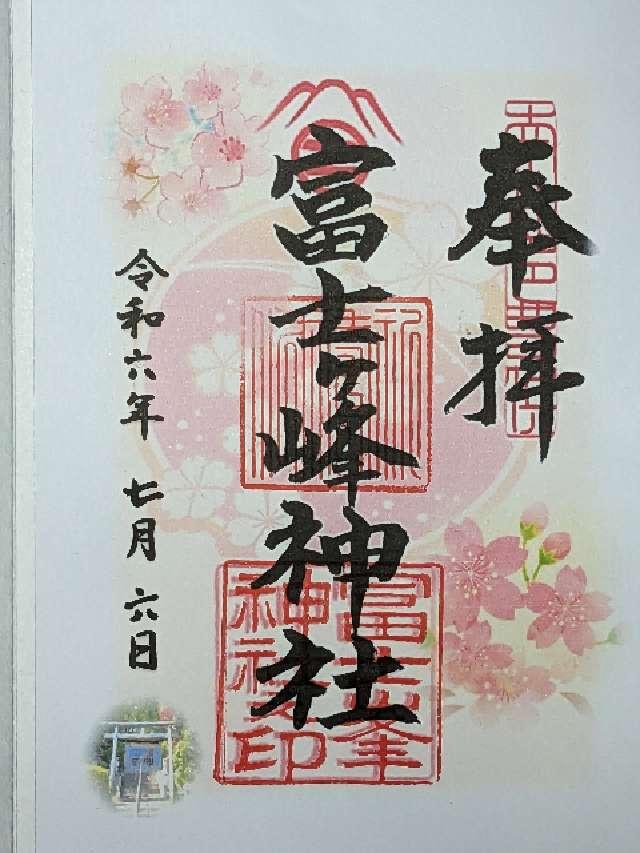 奉拝
富士ヶ峰神社
富士峯神社之印
令和六年 七月 六日